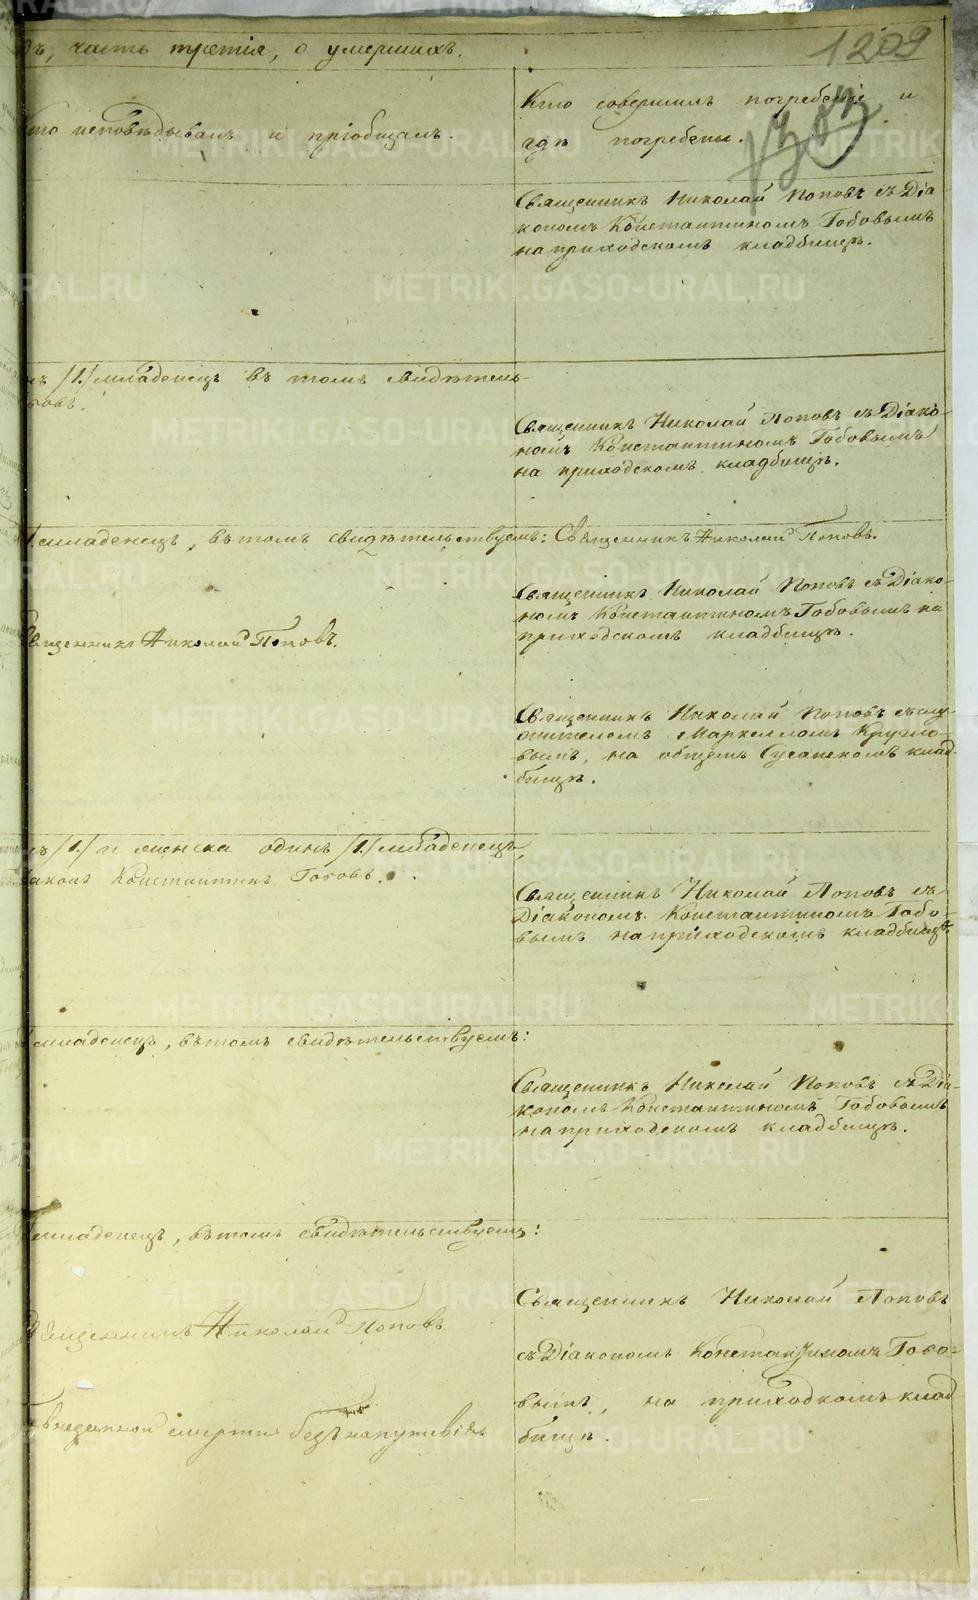 дъ, часть третія, о умершихъ.
1209
Кто исповѣдывалъ и пріобщалъ.
Кто совершилъ погребеніе и
гдѣ погребены.
Священникъ Николай Поповъ съ Діа
кономъ Константиномъ Гобовымъ
на приходскомъ кладбищѣ.
/1./ младенецъ въ томъ свидѣтель-
Священникъ Николай Поповъ съ Діако-
номъ Константиномъ Гобовымъ
на приходскомъ кладбищѣ.
младенецъ, въ томъ свидѣтельствуемъ: Священникъ Николай Поповъ.
Священникъ Николай Поповъ съ Діако-
номъ Константиномъ Гобовымъ на
приходскомъ кладбищѣ.
Священникъ Николай Поповъ.
Священникъ Николай Поповъ съ слу-
жителемъ Маркелломъ Кругло-
вымъ, на общемъ Сусанскомъ клад-
бищѣ.
/1./ и женска одинъ /1./ младенецъ,
Діаконъ Константинъ Гобовъ.
Священникъ Николай Поповъ съ
Діакономъ Константиномъ Гобо-
вымъ на приходскомъ кладбищѣ.
младенецъ, въ томъ свидѣтельствуемъ:
Священникъ Николай Поповъ съ Діа-
кономъ Константиномъ Гобовымъ
на приходскомъ кладбищѣ.
младенецъ, въ томъ свидѣтельствуемъ:
Священникъ Николай Поповъ
Священникъ Николай Поповъ.
съ Діакономъ Константиномъ Гобо-
вымъ, на приходкомъ клад
бищѣ.
внезапной смерти безъ напутствія
METRIKI.GASO-URAL.RU